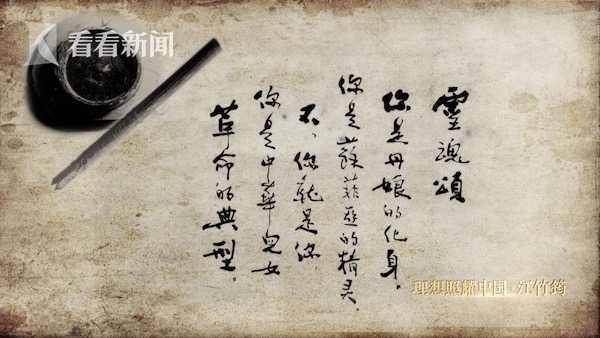 看看新闻
靈魂頌
你是丹娘的化身。
你是蘇菲亞的精灵。
不，你就是你
你是中華兒女
革命的典型。
理想照耀中国·江竹筠